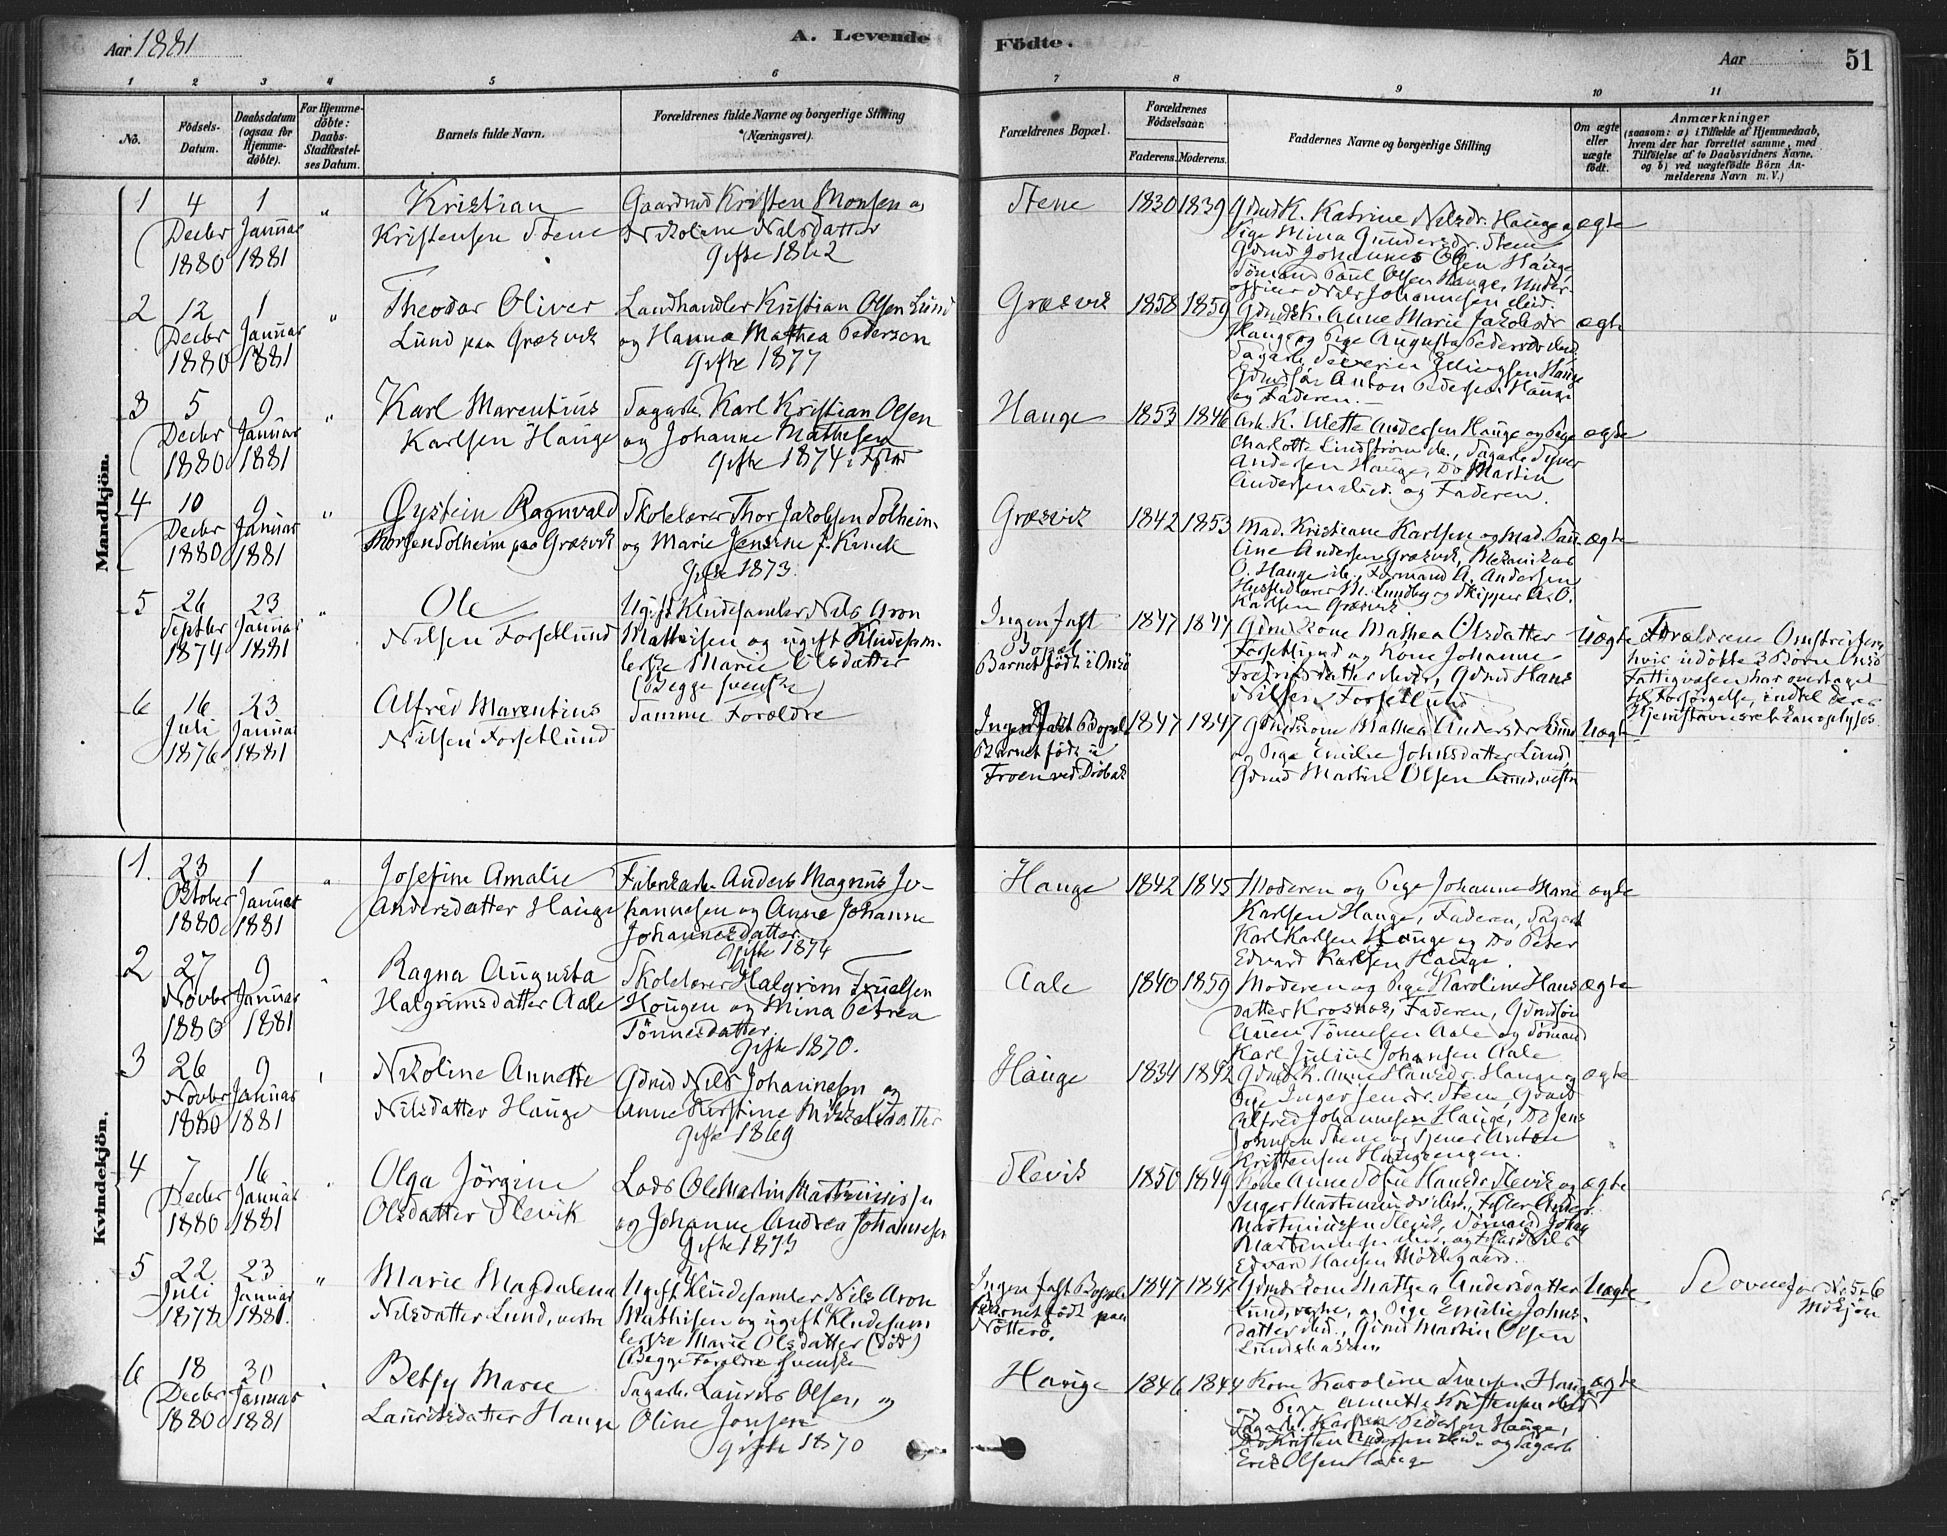 Aar 1881
A. Levende
Födte.
Aar
51
1 2 3 4 5 6 7 8 9 10 11
No.
Födsels-
Datum.
Daabsdatum
(ogsaa for
Hjemme-
döbte).
For Hjemme-
döbte:
Daabs-
Stadfæstel-
ses Datum.
Barnets fulde Navn.
Forældrenes fulde Navne og borgerlige Stilling
(Næringsvei).
Forældrenes Bopæl.
Forældrenes
Födselsaar.
Faderens. Moderens.
Faddernes Navne og borgerlige Stilling
Om ægte
eller
uægte
födt.
Anmærkninger
(saasom: a) i Tilfælde af Hjemmedaab,
hvem der har forrettet samme, med
Tilföielse af to Daabsvidners Navne.
og b) ved uægtefödte Börn An-
melderens Navn m. V.)
Mandkjön.
1
4
Decbr
1880
1
Januar
1881
"
Kristian
Kristensen Stene
Gaardmd Kristen Monsen og
Nikoline Nilsdatter
Gifte 1862
Stene
1830 1839
Gdmd K. Katrine Nilsdr. Hauge
Pige Mina Gundersdr. Stene
Gdmd Johannes Olsen Hauge
Sömand Paul Olsen Hauge, Under-
officer Nils Johannesen ibid.
ægte
2
12
Decbr
1880
1
Januar
1881
"
Theodor Oliver
Lund paa Græsvik
Landhandler Kristian Olsen Lund
og Hanna Mathea Pedersen
Gifte 1877
Græsvik
1858 1859
Gdmds K. Anne Marie Jakobsdr
Hauge og Pige Augusta Pedersdr ibid.
Dagarb. Severin Ellingsen Hauge
Gdmdsön Anton Pedersen Hauge
og Faderen.
ægte
3
5
Decbr
1880
9
Januar
1881
"
Karl Marentius
Karlsen Hauge
Dagarb. Karl Kristian Olsen
og Johanne Mathisen
Gifte 1874
Hauge
1853 1846
Arb. K. Mette Andersen Hauge og Pige
Charlotte Lindström ib., Dagarb.
Andersen Hauge, Do Martin
Andersen ibid. og Faderen.
ægte
4
10
Decbr
1880
9
Januar
1881
"
Øystein Ragnvald
Thorsen Solheim paa Græsvik
Skolelærer Thor Jakobsen Solheim
og Marie Jensine f. Krack
Gifte 1873.
Græsvik
1842 1853
Mad. Kristiane Karlsen og Mad. Pau-
line Andersen Græsvik, Mekanikus
O. Hauge ib., Formand A. Andersen
M. Lundby og Skipper A. O.
Karlsen Græsvik
ægte
5
26
Septbr
1874
23
Januar
1881
"
Ole
Nilsen Forsetlund
Ugift Kludesamler Nils Aron
Mathisen og ugift Kludesam-
lerske Marie Olsdatter
(Begge svenske)
Ingen fast
Bopæl
Barnet födt i Onsö
1847 1847
Gdmd Kone Mathea Olsdatter
Forsetlund og Kone Johanne
Fredriksdatter ibid., Gdmd Hans
Nilsen Forsetlund
Uægte
Forældrene Omstreifere,
hvis udöbte 3 Börn Onsö
Fattigvæsen har overtaget
til Forsörgelse, indtil deres
Hjemstavnsret kan oplyses.
6
16
Juli
1876
23
Januar
1881
Alfred Marentius
Nilsen Forsetlund
Samme Forældre
Ingen fast Bopæl
Barnet födt i
Froen ved Dröbak
1847 1847
Gdmds Kone Mathea Andersdr Lund
og Pige Emilie Johnsdatter Lund,
Gdmd Martin Olsen Lund, vestre
Uægte
Kvindekjön.
1.
23
Oktober
1880
1
Januar
1881
"
Josefine Amalie
Andersdatter Hauge
Fabrikarb. Anders Magnus Jo-
hannesen og Anne Johanne
Johannesdatter
Gifte 1874
Hauge
1842 1845
Moderen og Pige Johanne Marie
Karlsen Hauge, Faderen, Dagarb
Karl Karlsen Hauge og Do Peter
Edvard Karlsen Hauge.
ægte
2
27
Novbr
1880
9
Januar
1881
"
Ragna Augusta
Halgrimsdatter Aale
Skolelærer Halgrim Truelsen
Hougen og Mina Petrea
Tönnesdatter.
Gifte 1870.
Aale
1840 1859
Moderen og Pige Karoline Hans
datter Krosnes, Faderen, Gdmdsön
Tönnesen Aale og Sömand
Karl Julius Johansen Aale
ægte
3
26
Novbr
1880
9
Januar
1881
Nikoline Annette
Nilsdatter Hauge
Gdmd Nils Johannesen og
Anne Kirstine Mikkelsdatter
Gifte 1869
Hauge
1834 1842
Gdmd K. Anne Hansdr. Hauge og
Pige Inger Jensdr. Stene, Gdmd
Alfred Johannesen Hauge, Do Jens
Johnsen Stene og Tjener Anton
Kristensen Haugeengen.
ægte
4
7
Decbr
1880
16
Januar
1881
"
Olga Jörgine
Olsdatter Slevik
Lods Ole Martin Martiniussen
og Johanne Andrea Johannesen
Gifte 1873
Slevik
1850 1849
Kone Anne Sofie Hansdr Slevik og
Inger Martinusdr ibid., Fisker Anders
Martinusen Slevik, Sömand Johan
Martinusen ibid. og Nils
Edvard Hansen Mörkegaard.
ægte
5
22
Juli
1878
23
Januar
1881.
"
Marie Magdalena
Nilsdatter Lund, vestre
Ugift Kludesamler Nils Aron
Mathisen og ugift Kludesam
lerske Marie Olsdatter (död)
(Begge Forældre svenske
Ingen fast Bopæl
Barnet födt paa
Nötterö.
1847 1847
Gdmds Kone Mathea Andersdatter
Lund, vestre, og Pige Emilie Johns-
datter ibid., Gdmd Martin Olsen
Lundebakken
Uægte
Se ovenfor No 5 & 6
Mdkjön
6
18
Decbr
1880
30
Januar
1881
"
Betsy Marie
Lauritsdatter Hauge
Dagarb. Laurits Olsen og
Oline Jonsen
Gifte 1870
Hauge
1846 1844
Kone Karoline Hauge
og Pige Annette Kristensen ibid
Dagarb. Karl Pedersen Hauge,
Do Kristen ibid. og Dagarb
Erik Olsen Hauge
ægte